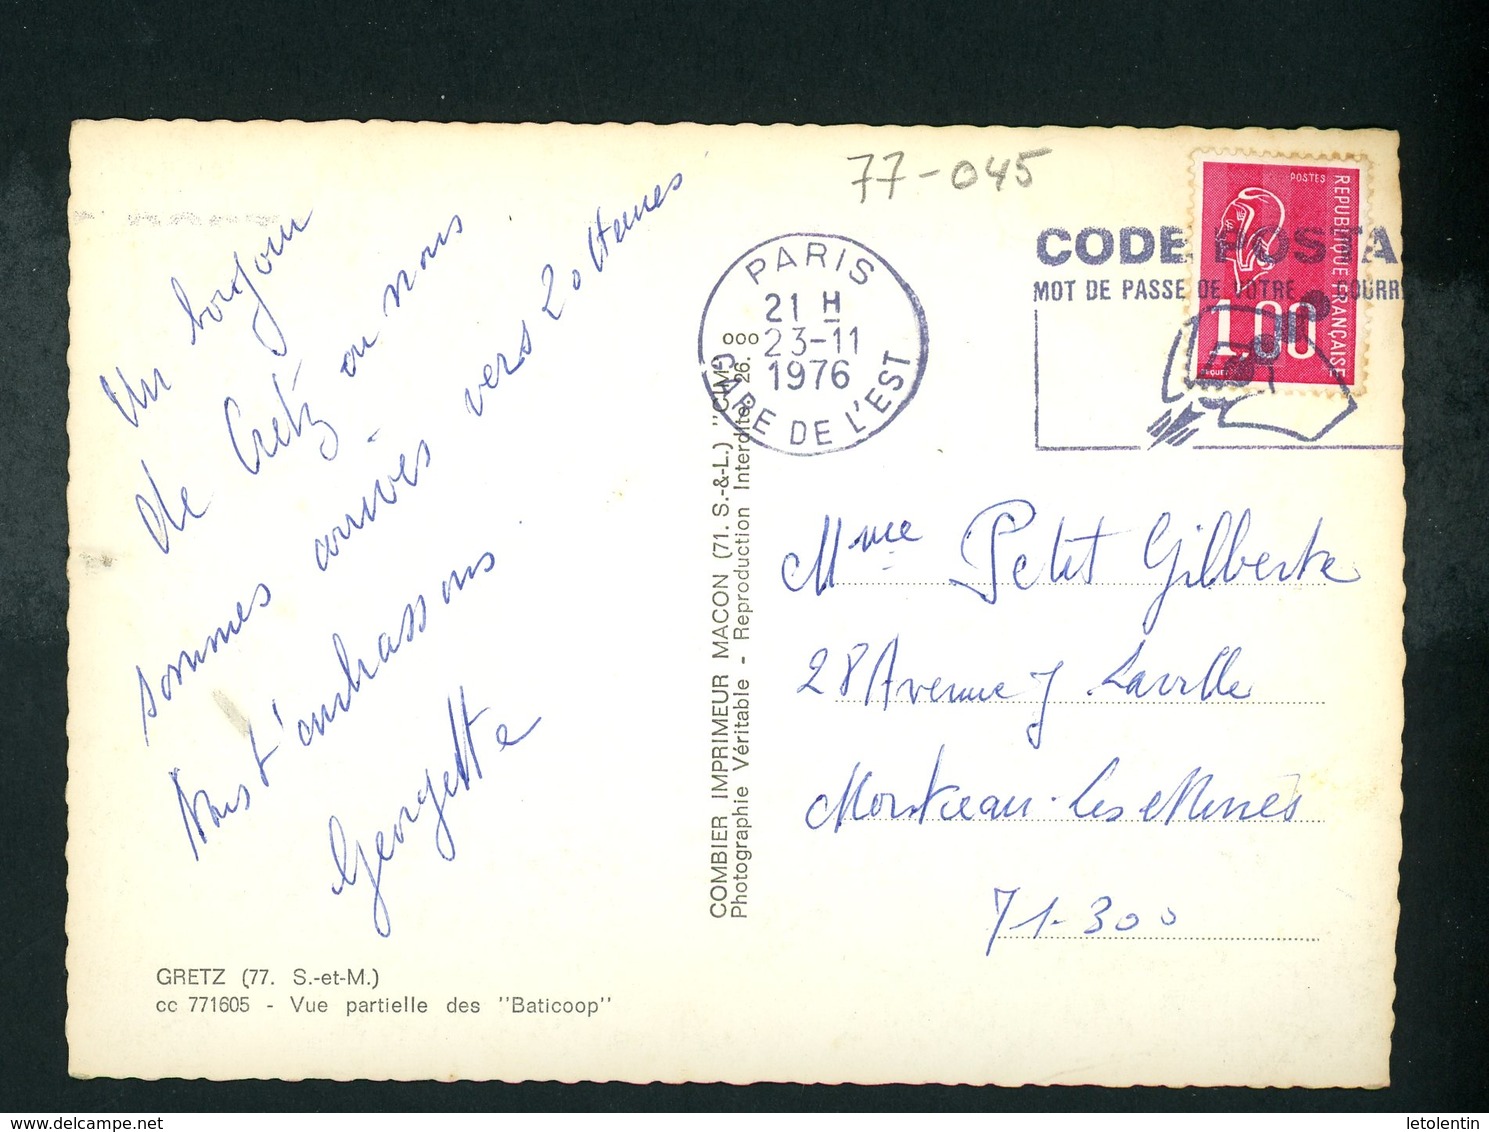 77-045
POSTES
REPUBLIQUE FRANÇAISE
1,00
PARIS
21 H
ooo 23-11
1976
GARE DE L'EST
CODE POSTA
MOT DE PASSE DE VOTRE COURRI
Un bonjour
de Gretz où nous
sommes arrivés vers 20 heures
Nous t'embrassons
Georgette
COMBIER IMPRIMEUR MACON (71. S.-&-L.) "CIM"
Photographie Véritable - Reproduction Interdite 26.
Mme Petit Gilberte
28 Avenue J Laville
Montceau-les Mines
71-300
GRETZ (77. S.-et-M.)
cc 771605 - Vue partielle des "Baticoop"
letolentin